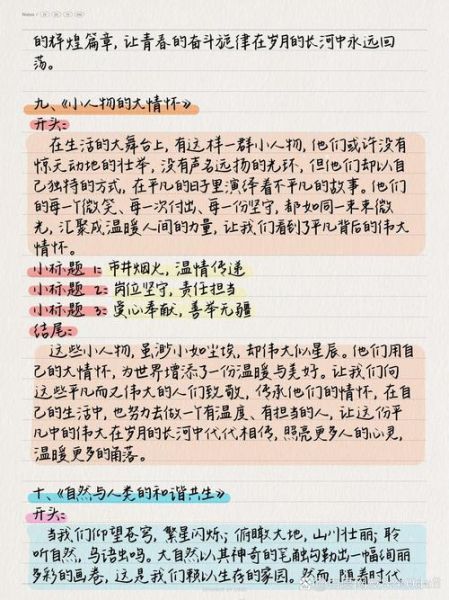 的辉煌篇章，让青春的奋斗旋律在岁月的长河中永远回
荡。
九、《小人物的大情怀》
开头：
在生活的大舞台上，有这样一群小人物，他们或许没有
惊天动地的壮举，没有声名远扬的光环，但他们却以自
己独特的方式，在平凡的日子里演绎着不平凡的故事。他们
的每一个微笑、每一次付出、每一份坚守，都如同一束束微
光，汇聚成温暖人间的力量，让我们看到了平凡背后的伟大
情怀。
小标题 1：市井烟火，温情传递
小标题 2：岗位坚守，责任担当
小标题 3：爱心奉献，善举无疆
结尾：
这些小人物，虽渺小如尘埃，却伟大似星辰。他们用自
己的大情怀，为世界增添了一份温暖与美好。让我们向
这些平凡而又伟大的人们致敬，传承他们的情怀，在自
己的生活中，也努力去做一个有温度、有担当的人，让这份平
凡中的伟大在岁月的长河中代代相传，照亮更多人的心灵，
温暖更多的角落。
十、《自然与人类的和谐共生》
开头：
当我们仰望苍穹，繁星闪烁；俯瞰大地，山川壮丽；聆
听自然，鸟语虫鸣。大自然以其神奇的笔触勾勒出一幅绚丽
多彩的画卷，这是我们赖以生存的家园。然而，随着时代